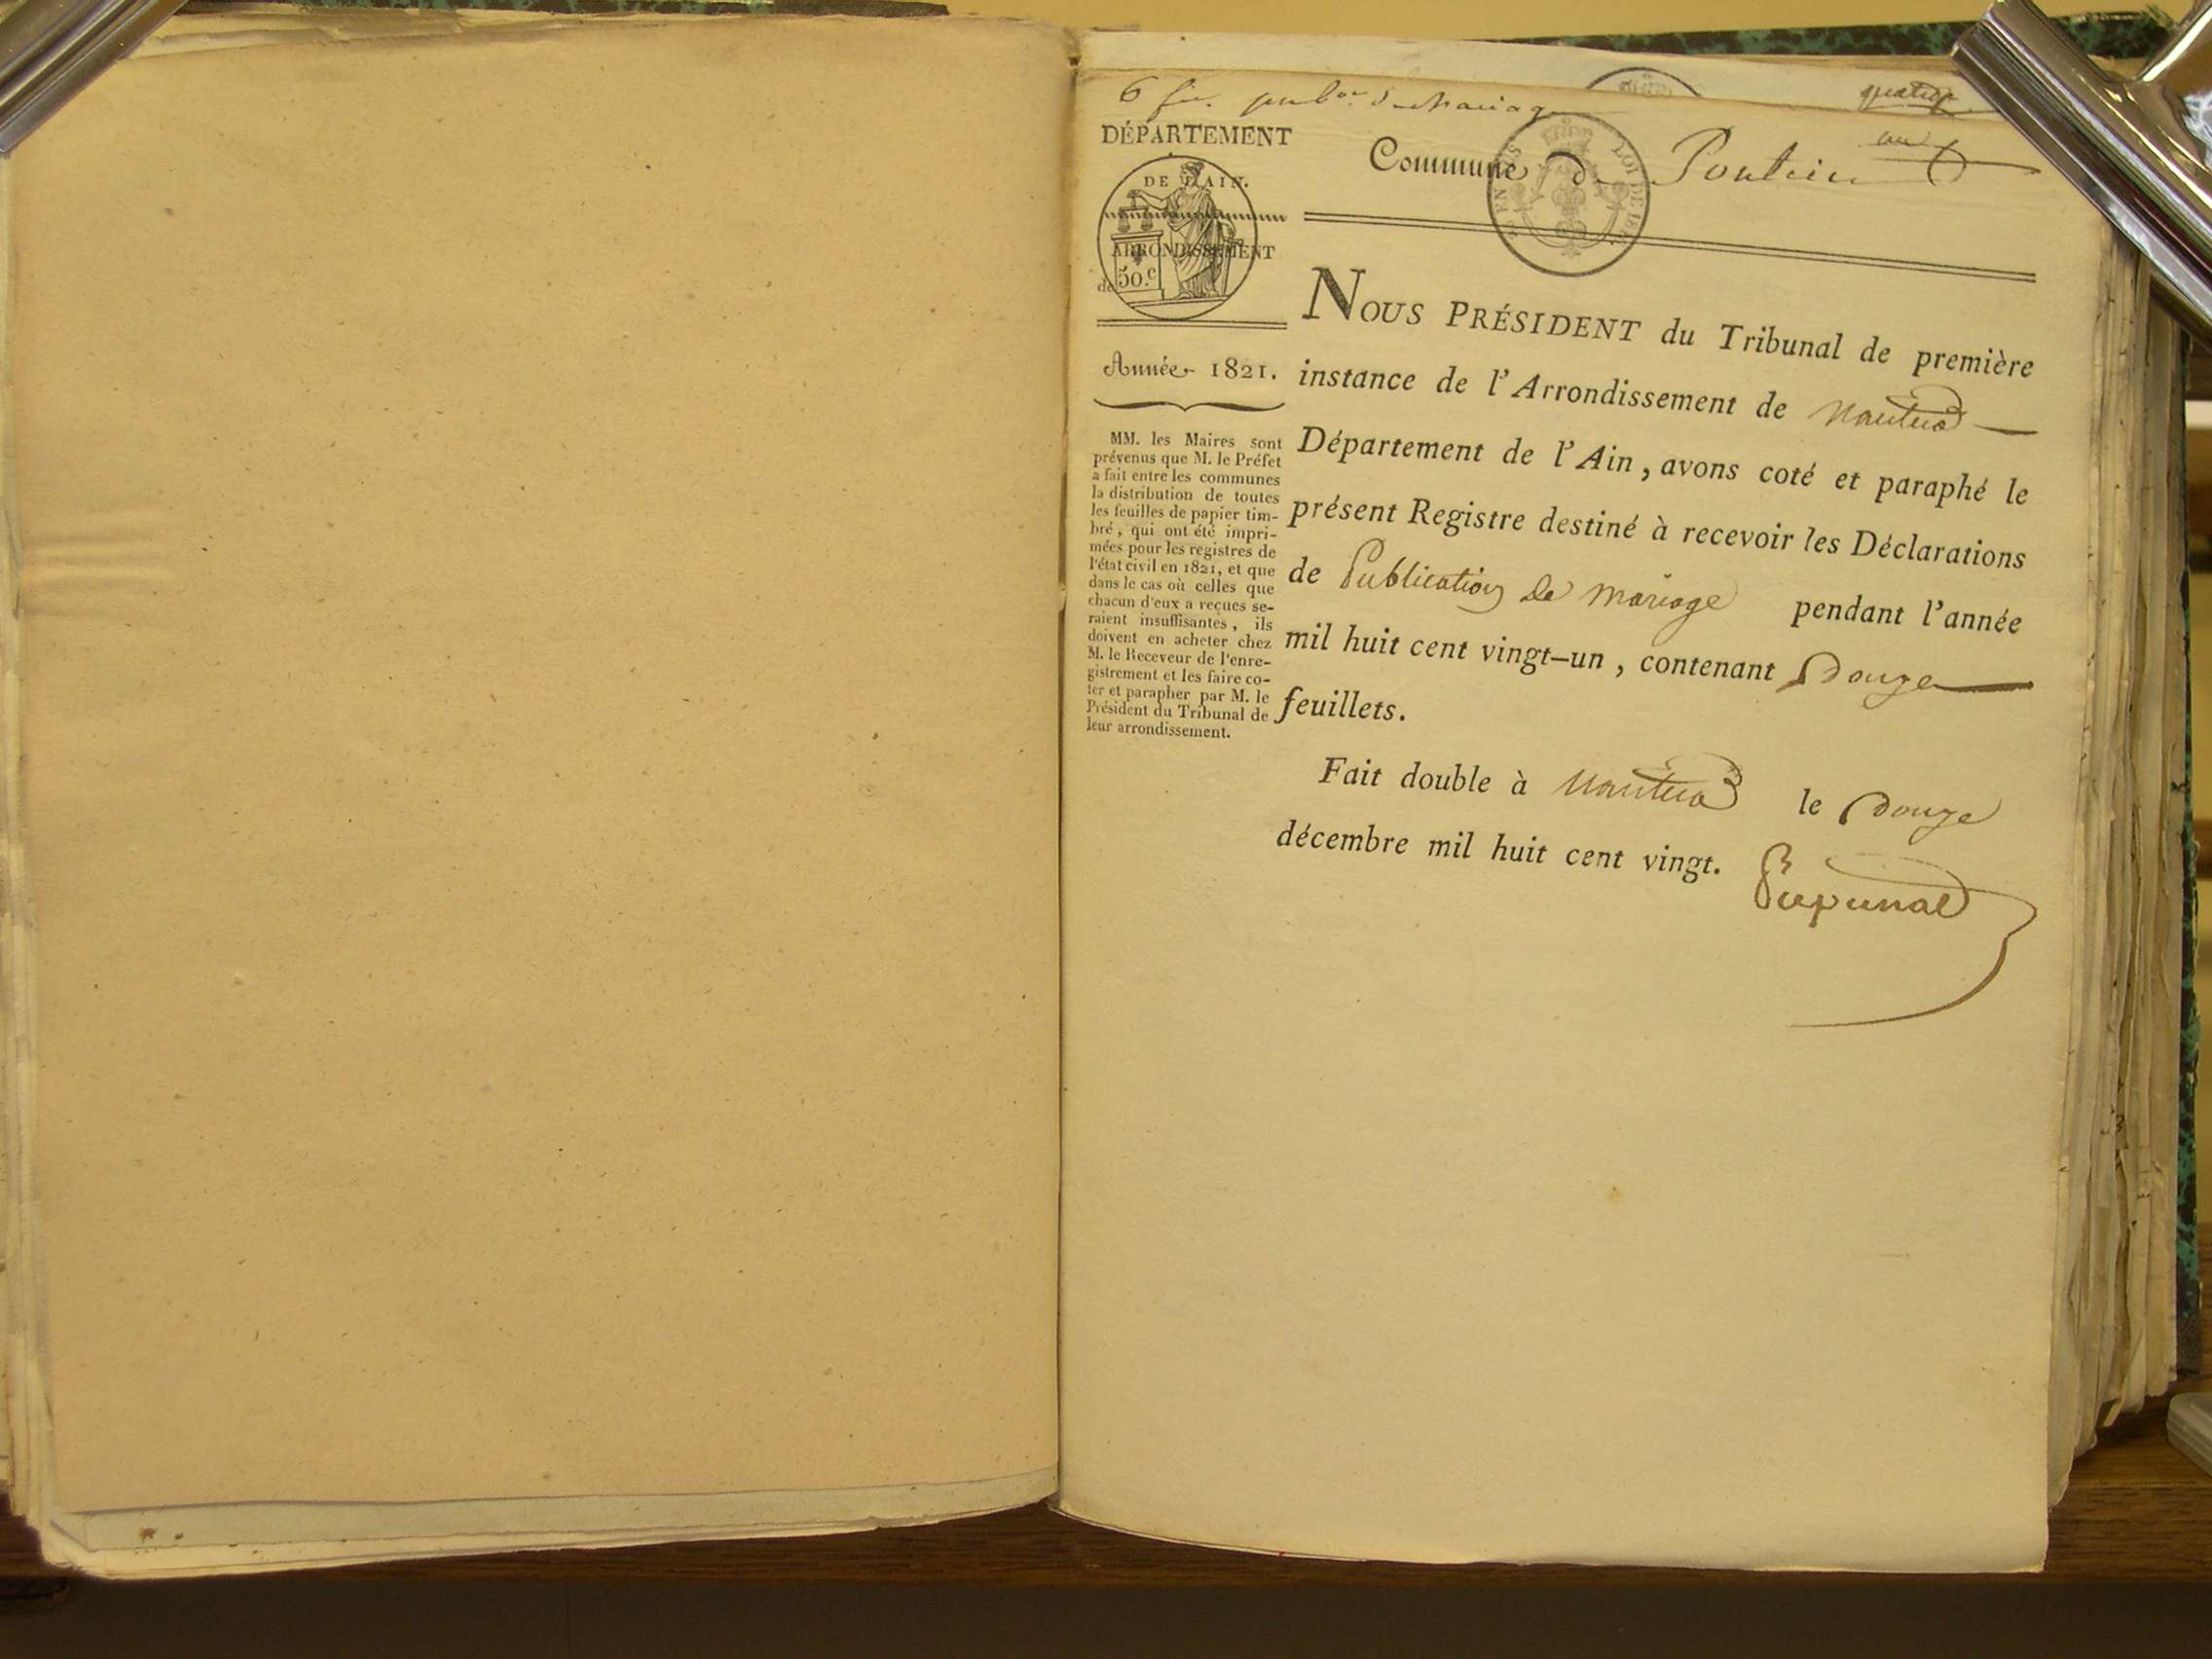 DÉPARTEMENT
DE L'AIN.
ARRONDISSEMENT
de
50.c
Année 1821.
MM. les Maires sont
prévenus que M. le Préfet
a fait entre les communes
la distribution de toutes
les feuilles de papier tim-
bré, qui ont été impri-
mées pour les registres de
l'état civil en 1821, et que
dans le cas où celles que
chacun d'eux a reçues se-
raient insuffisantes, ils
doivent en acheter chez
M. le Receveur de l'enre-
gistrement et les faire co-
ter et parapher par M. le
Président du Tribunal de
leur arrondissement.
Commune de
NOUS PRÉSIDENT du Tribunal de première
instance de l'Arrondissement de Nantua
Département de l'Ain, avons coté et paraphé le
présent Registre destiné à recevoir les Déclarations
de Publication de mariage pendant l'année
mil huit cent vingt-un, contenant Douze
feuillets.
Fait double à Nantua le Douze
décembre mil huit cent vingt.